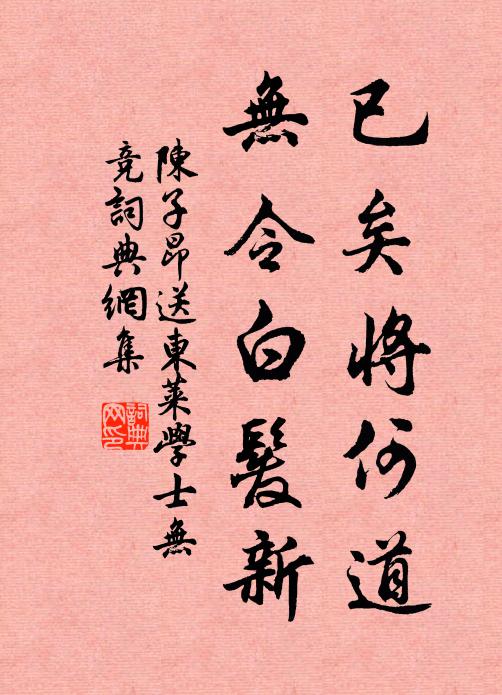 已矣將何道
無令白髮新
陳子昂送東萊學士無
竞詞典網集
詞典
网印